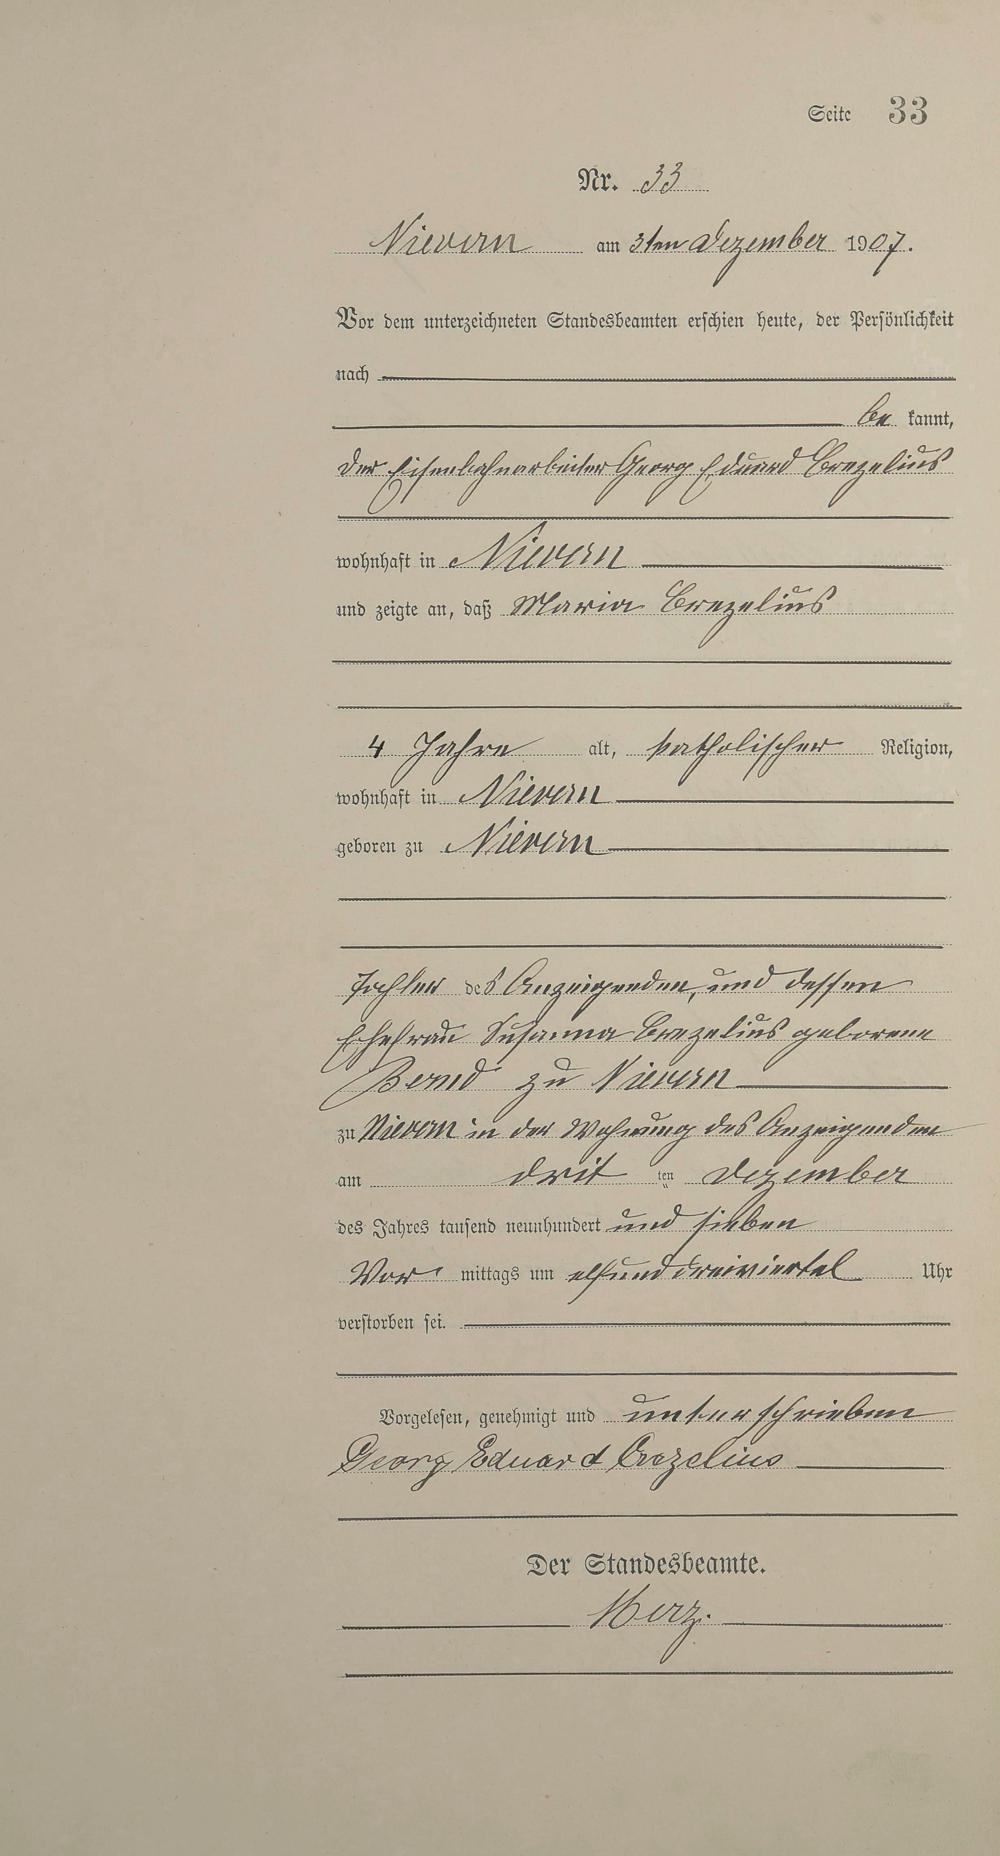 Seite 33
Nr. 33
Nievern am 3ten Dezember 1907.
Vor dem unterzeichneten Standesbeamten erschien heute, der Persönlichkeit
nach
be kannt,
der Eisenbahnarbeiter Georg Eduard Crezelius
wohnhaft in Nievern
und zeigte an, daß Maria Crezelius
4 Jahre alt, katholischer Religion,
wohnhaft in Nievern
geboren zu Nievern
Tochter des Anzeigenden, und dessen
Ehefrau Susanna Crezelius geborene
Bernd zu Nievern
zu Nievern in der Wohnung des Anzeigenden
am drit ten Dezember
des Jahres tausend neunhundert und sieben
Vor mittags um elfunddreiviertel Uhr
verstorben sei.
Vorgelesen, genehmigt und unterschrieben
Georg Eduard Crezelius
Der Standesbeamte.
Merz.